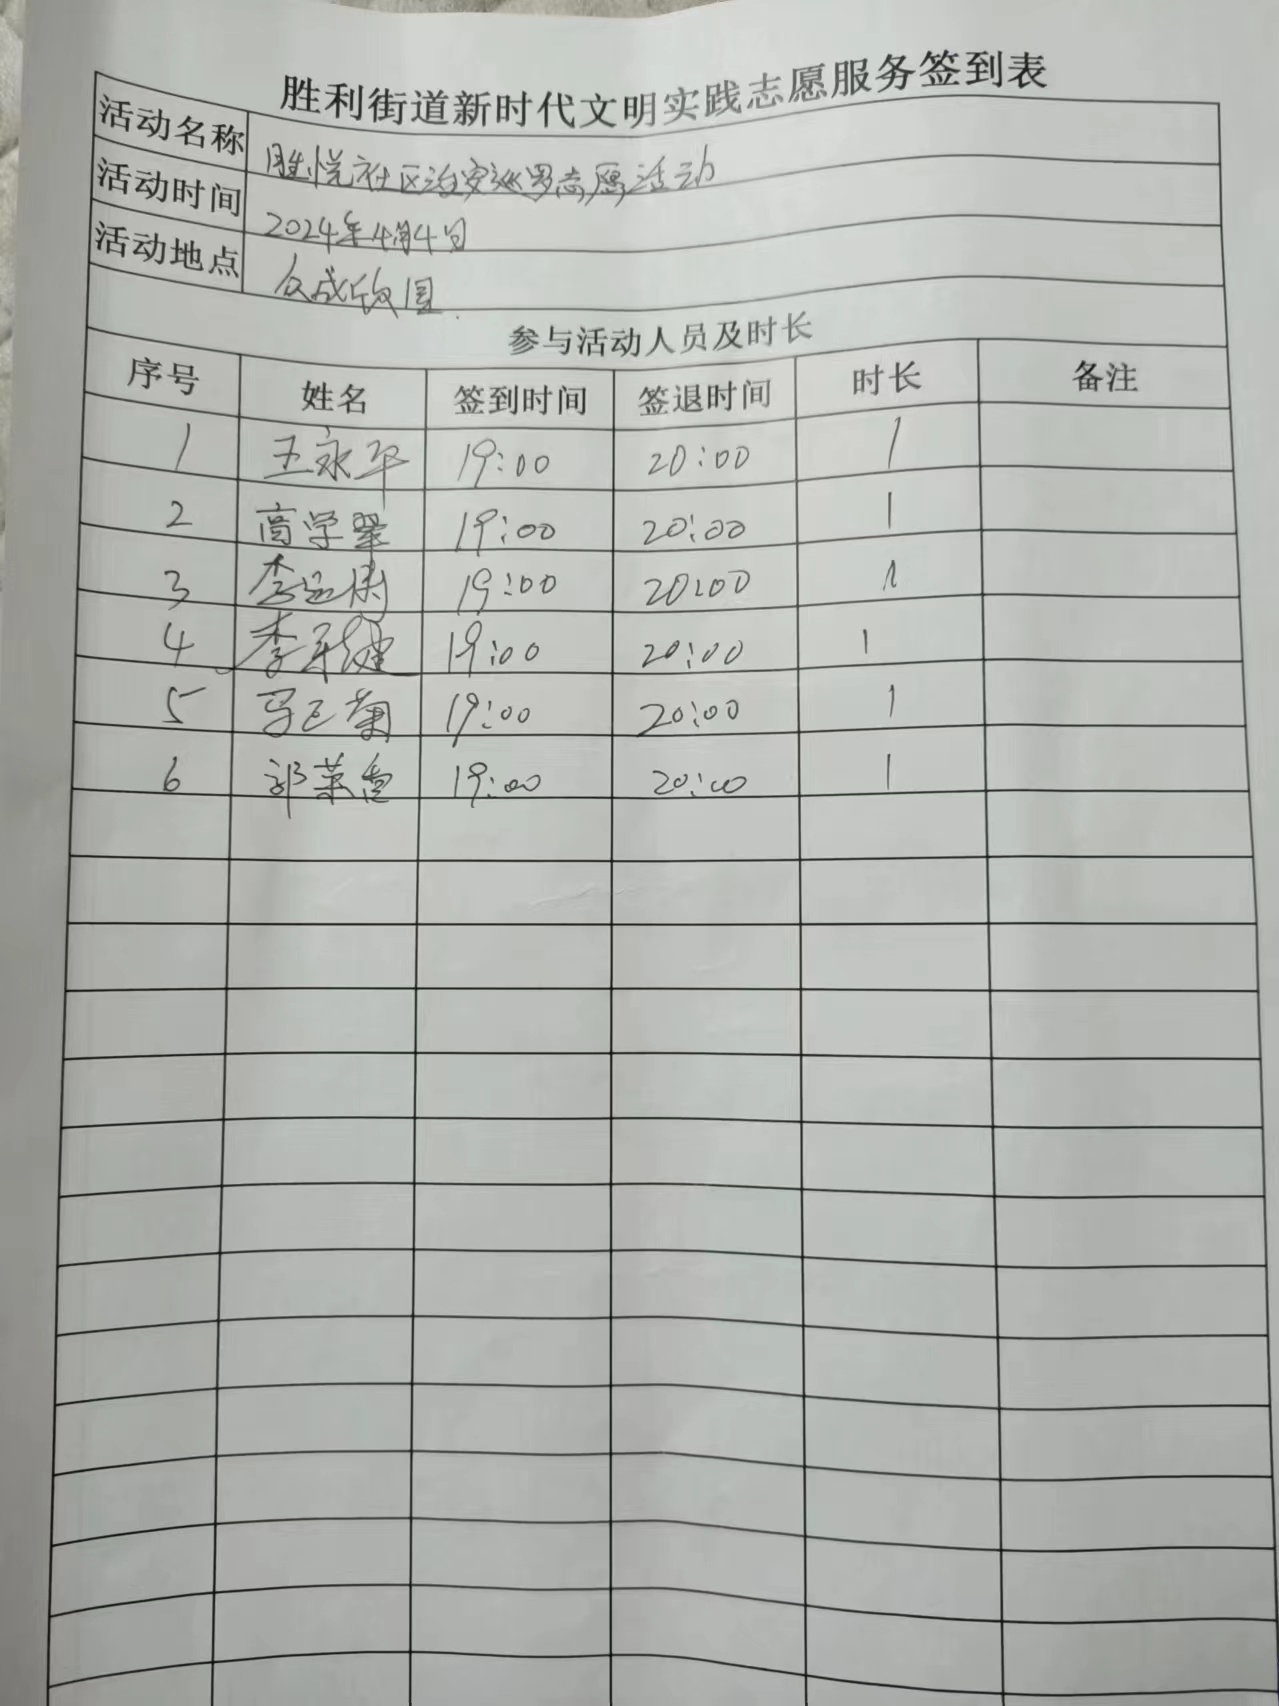 胜利街道新时代文明实践志愿服务签到表
活动名称 胜悦社区治安巡逻志愿活动
活动时间 2024年4月4日
活动地点 众成
参与活动人员及时长
序号 姓名 签到时间 签退时间 时长 备注
1 王永华 19:00 20:00 1
2 高学翠 19:00 20:00 1
3 李 19:00 20:00 1
4 李 19:00 20:00 1
5 菊 19:00 20:00 1
6 郭英 19:00 20:00 1